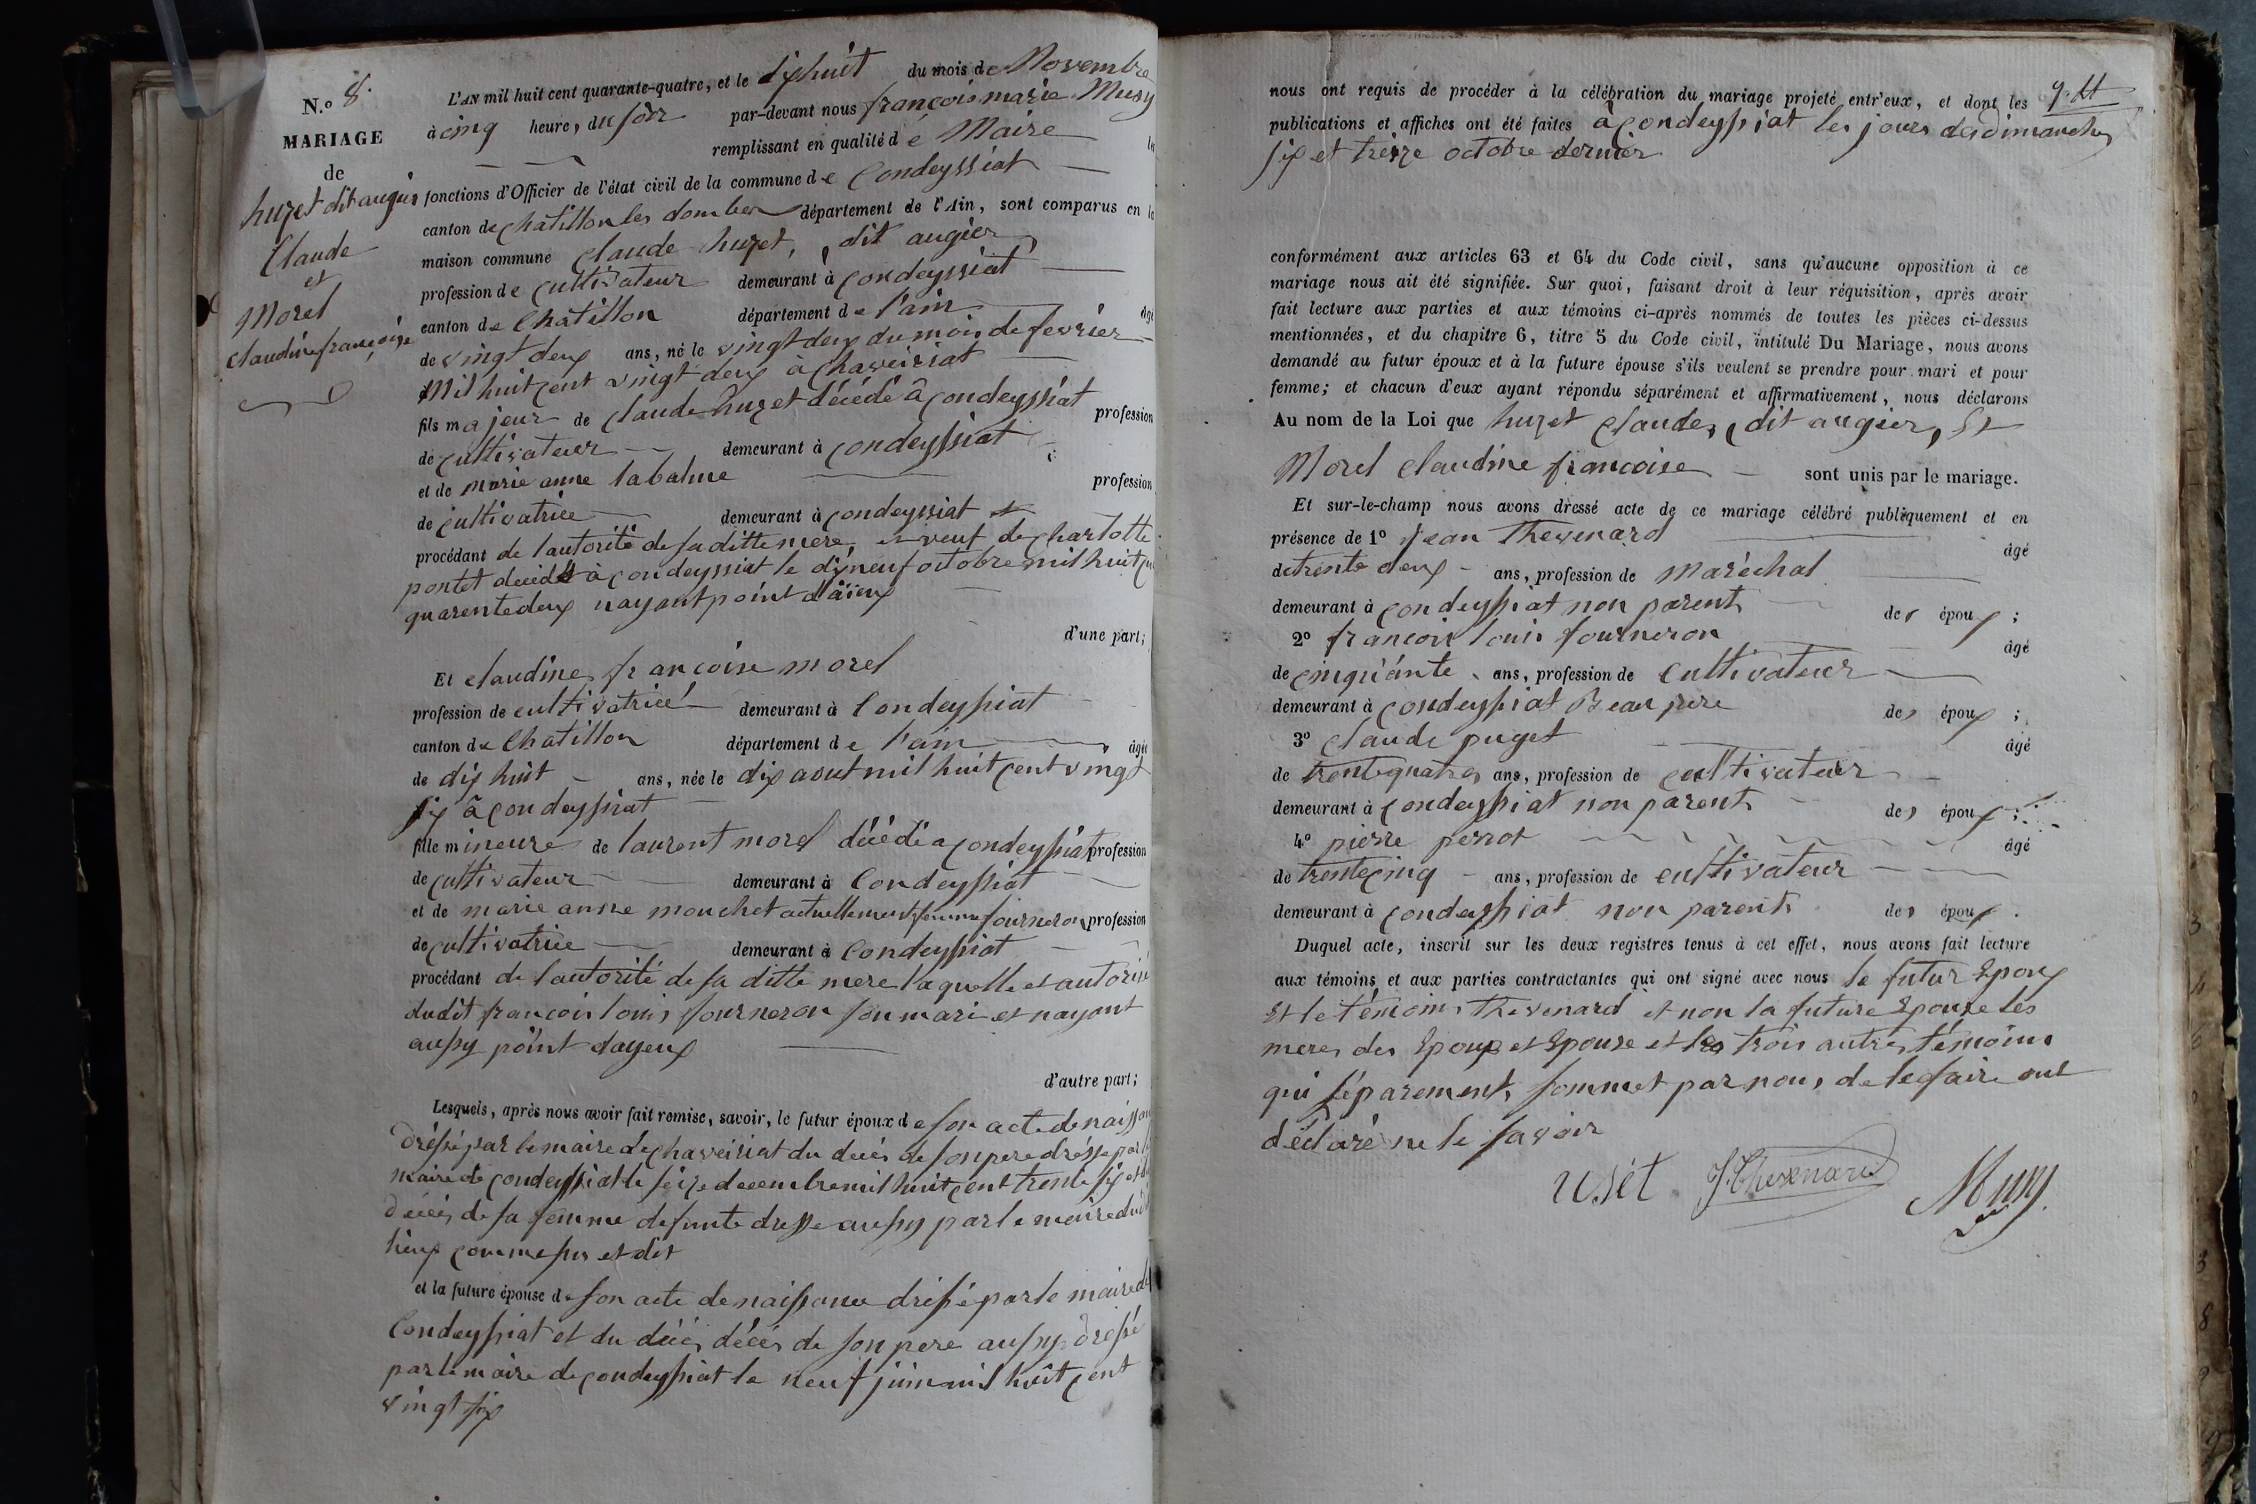 N.o 8.
MARIAGE
de
huzet dit augier
Claude
et
Morel
claudine françoise
L'AN mil huit cent quarante-quatre, et le dixhuit du mois de Novembre
à cinq heure, du soir par-devant nous françois marie Musy
remplissant en qualité de Maire
fonctions d'Officier de l'état civil de la commune de Condeyssiat
canton de chatillon les dombes département de l'Ain, sont comparus en la
maison commune claude huzet, dit augier
profession de cultivateur demeurant à condeyssiat
canton de Chatillon département de l'ain âgé
de vingt deux ans, né le vingt deux du mois de fevrier
Mil huit cent vingt deux à chaveiriat
fils majeur de claude huzet décédé à condeyssiat profession
de cultivateur demeurant à condeyssiat
et de marie anne labalme profession
de cultivatrice demeurant à condeyssiat
procédant de l'autorité de sa ditte mere, et veuf de charlotte
pontet à condeyssiat le dixneuf octobre mil huit
quarentedeux nayant point d'aïeux
d'une part;
Et claudine francoise morel
profession de cultivatrice demeurant à Condeyssiat
canton de Chatillon département de l'ain âgée
de dix huit ans, née le dix aout mil huit cent vingt
six à condeyssiat
fille mineure de laurent morel décédé a condeyssiat profession
de cultivateur demeurant à Condeyssiat
et de marie anne monchet actuellement femme fourneron profession
de cultivatrice demeurant à Condeyssiat
procédant de l'autorité de sa ditte mere laquelle est autorisé
dudit francois louis fourneron son mari et nayant
aussy point dayeux
d'autre part;
Lesquels, après nous avoir fait remise, savoir, le futur époux de son acte de
dréssé par le maire de chaveiriat du decés de son pere dréssé par
maire de condeyssiat le seize decembre mil huit cent trente six et
décés de sa femme defunte dressé aussy par le maire dudit
lieux comme sus et dit
et la future épouse de son acte de naissance dréssé par le maire de
Condeyssiat et du décés décés de son pere aussy dréssé
par le maire de condeyssiat le neuf juin mil huit cent
vingt six
nous ont requis de procéder à la célébration du mariage projeté entr'eux, et dont les
publications et affiches ont été faites à condeyssiat les jours de dimanche
six et treize octobre dernier
conformément aux articles 63 et 64 du Code civil, sans qu'aucune opposition à ce
mariage nous ait été signifiée. Sur quoi, faisant droit à leur réquisition, après avoir
fait lecture aux parties et aux témoins ci-après nommés de toutes les pièces ci-dessus
mentionnées, et du chapitre 6, titre 5 du Code civil, intitulé Du Mariage, nous avons
demandé au futur époux et à la future épouse s'ils veulent se prendre pour mari et pour
femme; et chacun d'eux ayant répondu séparément et affirmativement, nous déclarons
Au nom de la Loi que huzet Claude, dit augier, Et
Morel claudine francoise sont unis par le mariage.
Et sur-le-champ nous avons dressé acte de ce mariage célébré publiquement et en
présence de 1° Jean Thevenard âgé
de trente deux ans, profession de maréchal
demeurant à condeyssiat non parent des époux;
2° francois louis fourneron âgé
de cinquante ans, profession de cultivateur
demeurant à condeyssiat Beau pere des époux;
3° claude puget âgé
de trentequatre ans, profession de cultivateur
demeurant à condeyssiat non parent des époux;
4° pierre perrot âgé
de trentecinq ans, profession de cultivateur
demeurant à condeyssiat non parent des époux.
Duquel acte, inscrit sur les deux registres tenus à cet effet, nous avons fait lecture
aux témoins et aux parties contractantes qui ont signé avec nous le futur Epoux
Et le témoin Thevenard et non la future Epouse les
meres des Epoux et Epouse et les trois autres témoins
qui séparement sommet par nous de le faire ont
déclaré ne le savoir
Uset J Thevenard Musy